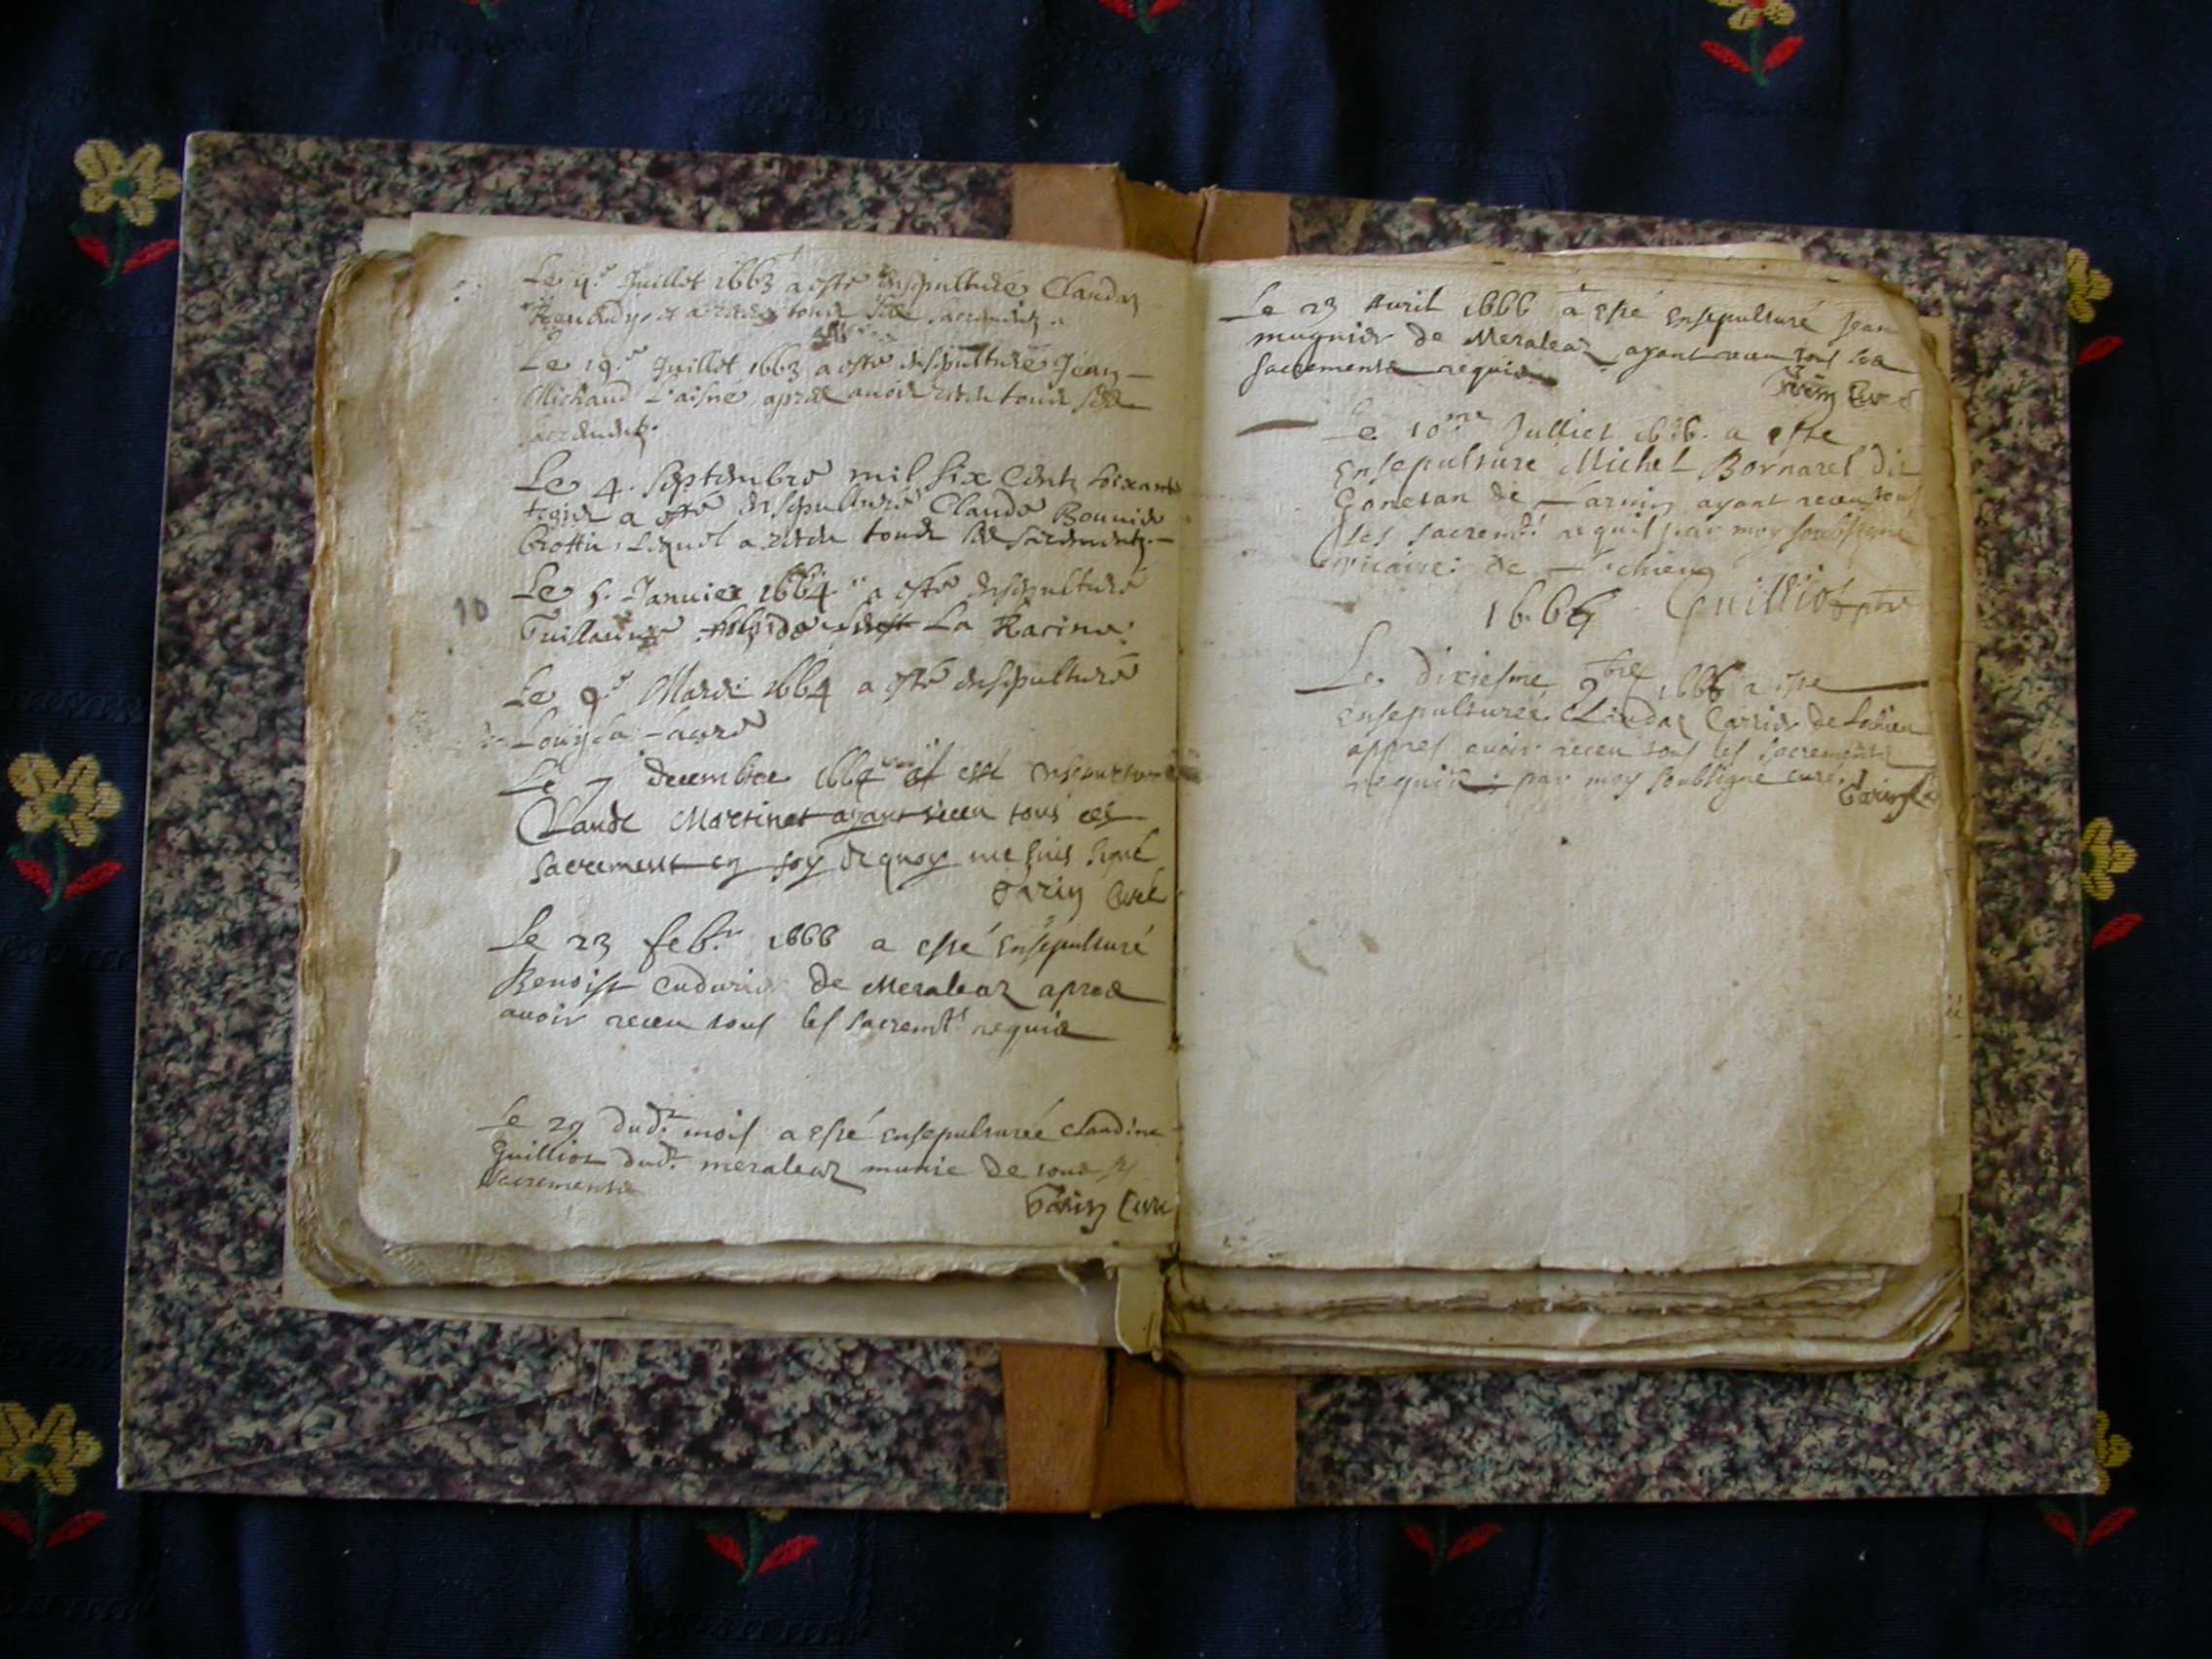 Le 4.e Juillet 1663 a esté ensepulturée Claudaz
a receu tous ses sacrementz
Le 19.e Juillet 1663 a esté ensepulturé Jean
Michaud L'aisné apres auoir receu tous ses
sacrementz.
Le 4. Septembre mil six centz soixante
treize a esté ensepulturé Claude Bouuier
Lequel a receu tous ses sacrementz.
10
Le 5. Januier 1664. a esté ensepulturé
Guillaume La Racine
Le 9.e Mars 1664 a esté ensepulturé
Louysa Laure
Le 7 decembre 1664 esté ensepulturé
Claude Martinet ayant receu tous ces
sacrement en foy de quoy me suis signé
Garin Curé
Le 23 feb.r 1666 a esté ensepulturé
Benoist de Meraleaz apres
auoir receu tous les sacremts requis
Le 29 dud.t mois a esté ensepulturée Claudine
Guilliot dud.t meraleaz munie de tous
sacrements
Garin Curé
Le 23 Auril 1666 a esté ensepulturé Jean
mugnier de Meraleaz ayant receu tous les
sacements requis
Garin Curé
Le 10me Julliet 1666. a este
ensepulturé Michel Bornarel dit
Gonetan de Larnin ayant receu tous
les sacremts requis par moy soubsigné
vicaire de
1666 Guilliot pbre
Le dixiesme 9bre 1666 a este
ensepulturée Claudaz Carrier de
appres auoir receu tous les sacrements
requis par moy soubsigne curé. Garin